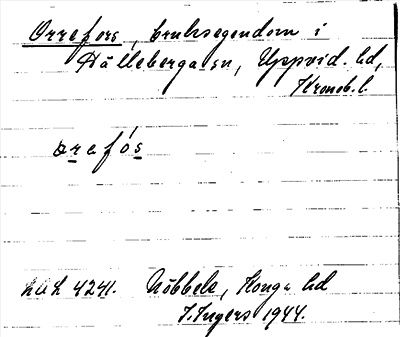 Orrefors, bruksegendom i
Hälleberga sn, Uppvid. hd,
Kronob. l.
orefós
LUL 4241. Nöbbele, Konga hd
I. Ingers 1944.